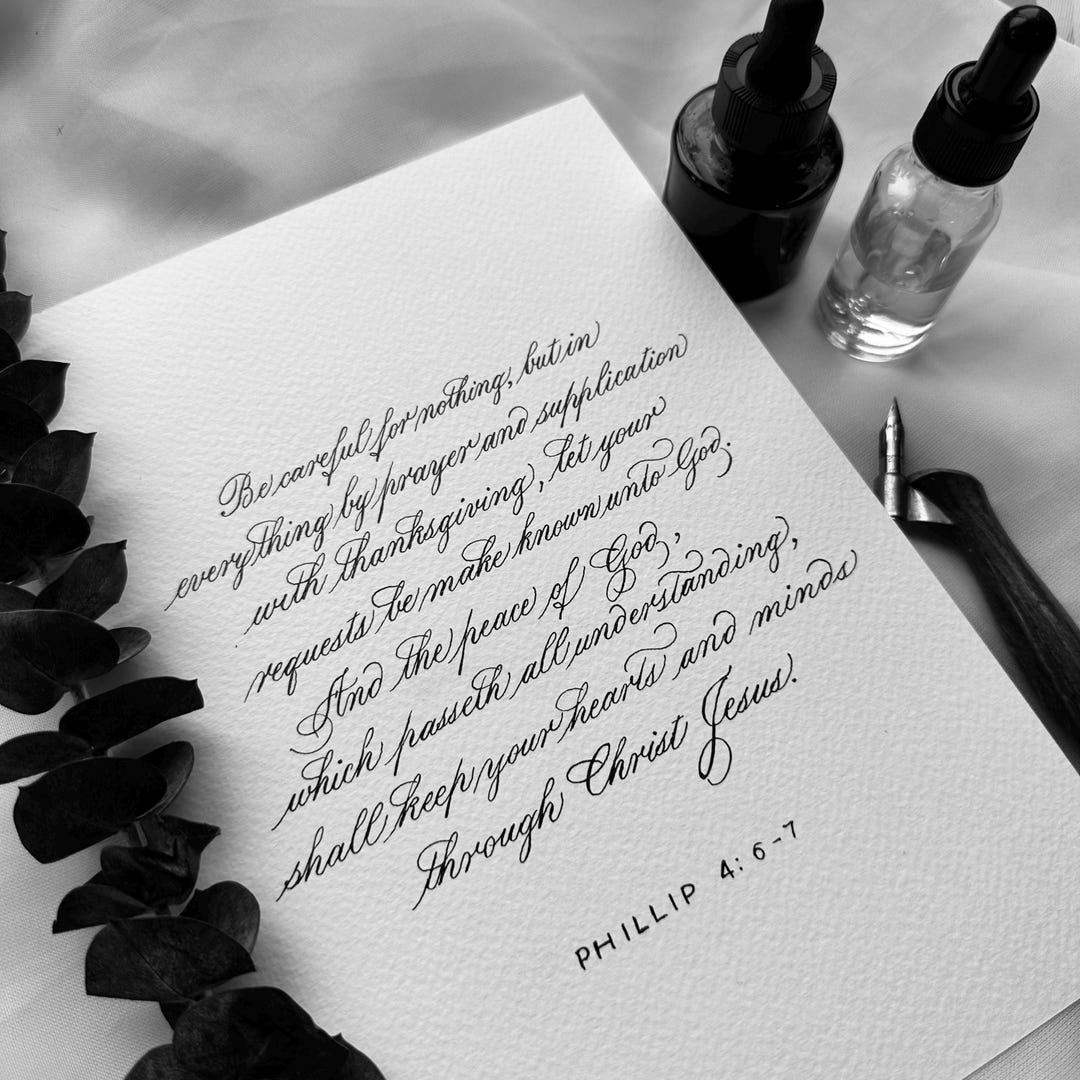 Be careful for nothing, but in
everything by prayer and supplication
with thanksgiving, let your
requests be make known unto God.
And the peace of God,
which passeth all understanding,
shall keep your hearts and minds
through Christ Jesus.
PHILLIP 4:6-7